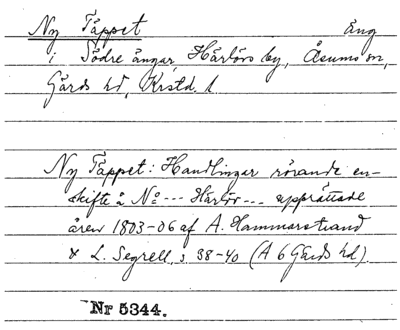 Ny Täppet Äng
i Södre ängar, Härlövs by, Åsums sn,
Gärds hd, Krstd. l.
Ny Täppet: Handlingar rörande en-
skifte å No --- Härlöv --- upprättade
åren 1803-06 af A. Hammarstrand
& L. Segrell, s. 38-40 (A 6 Gärds hd).
Nr 5344.